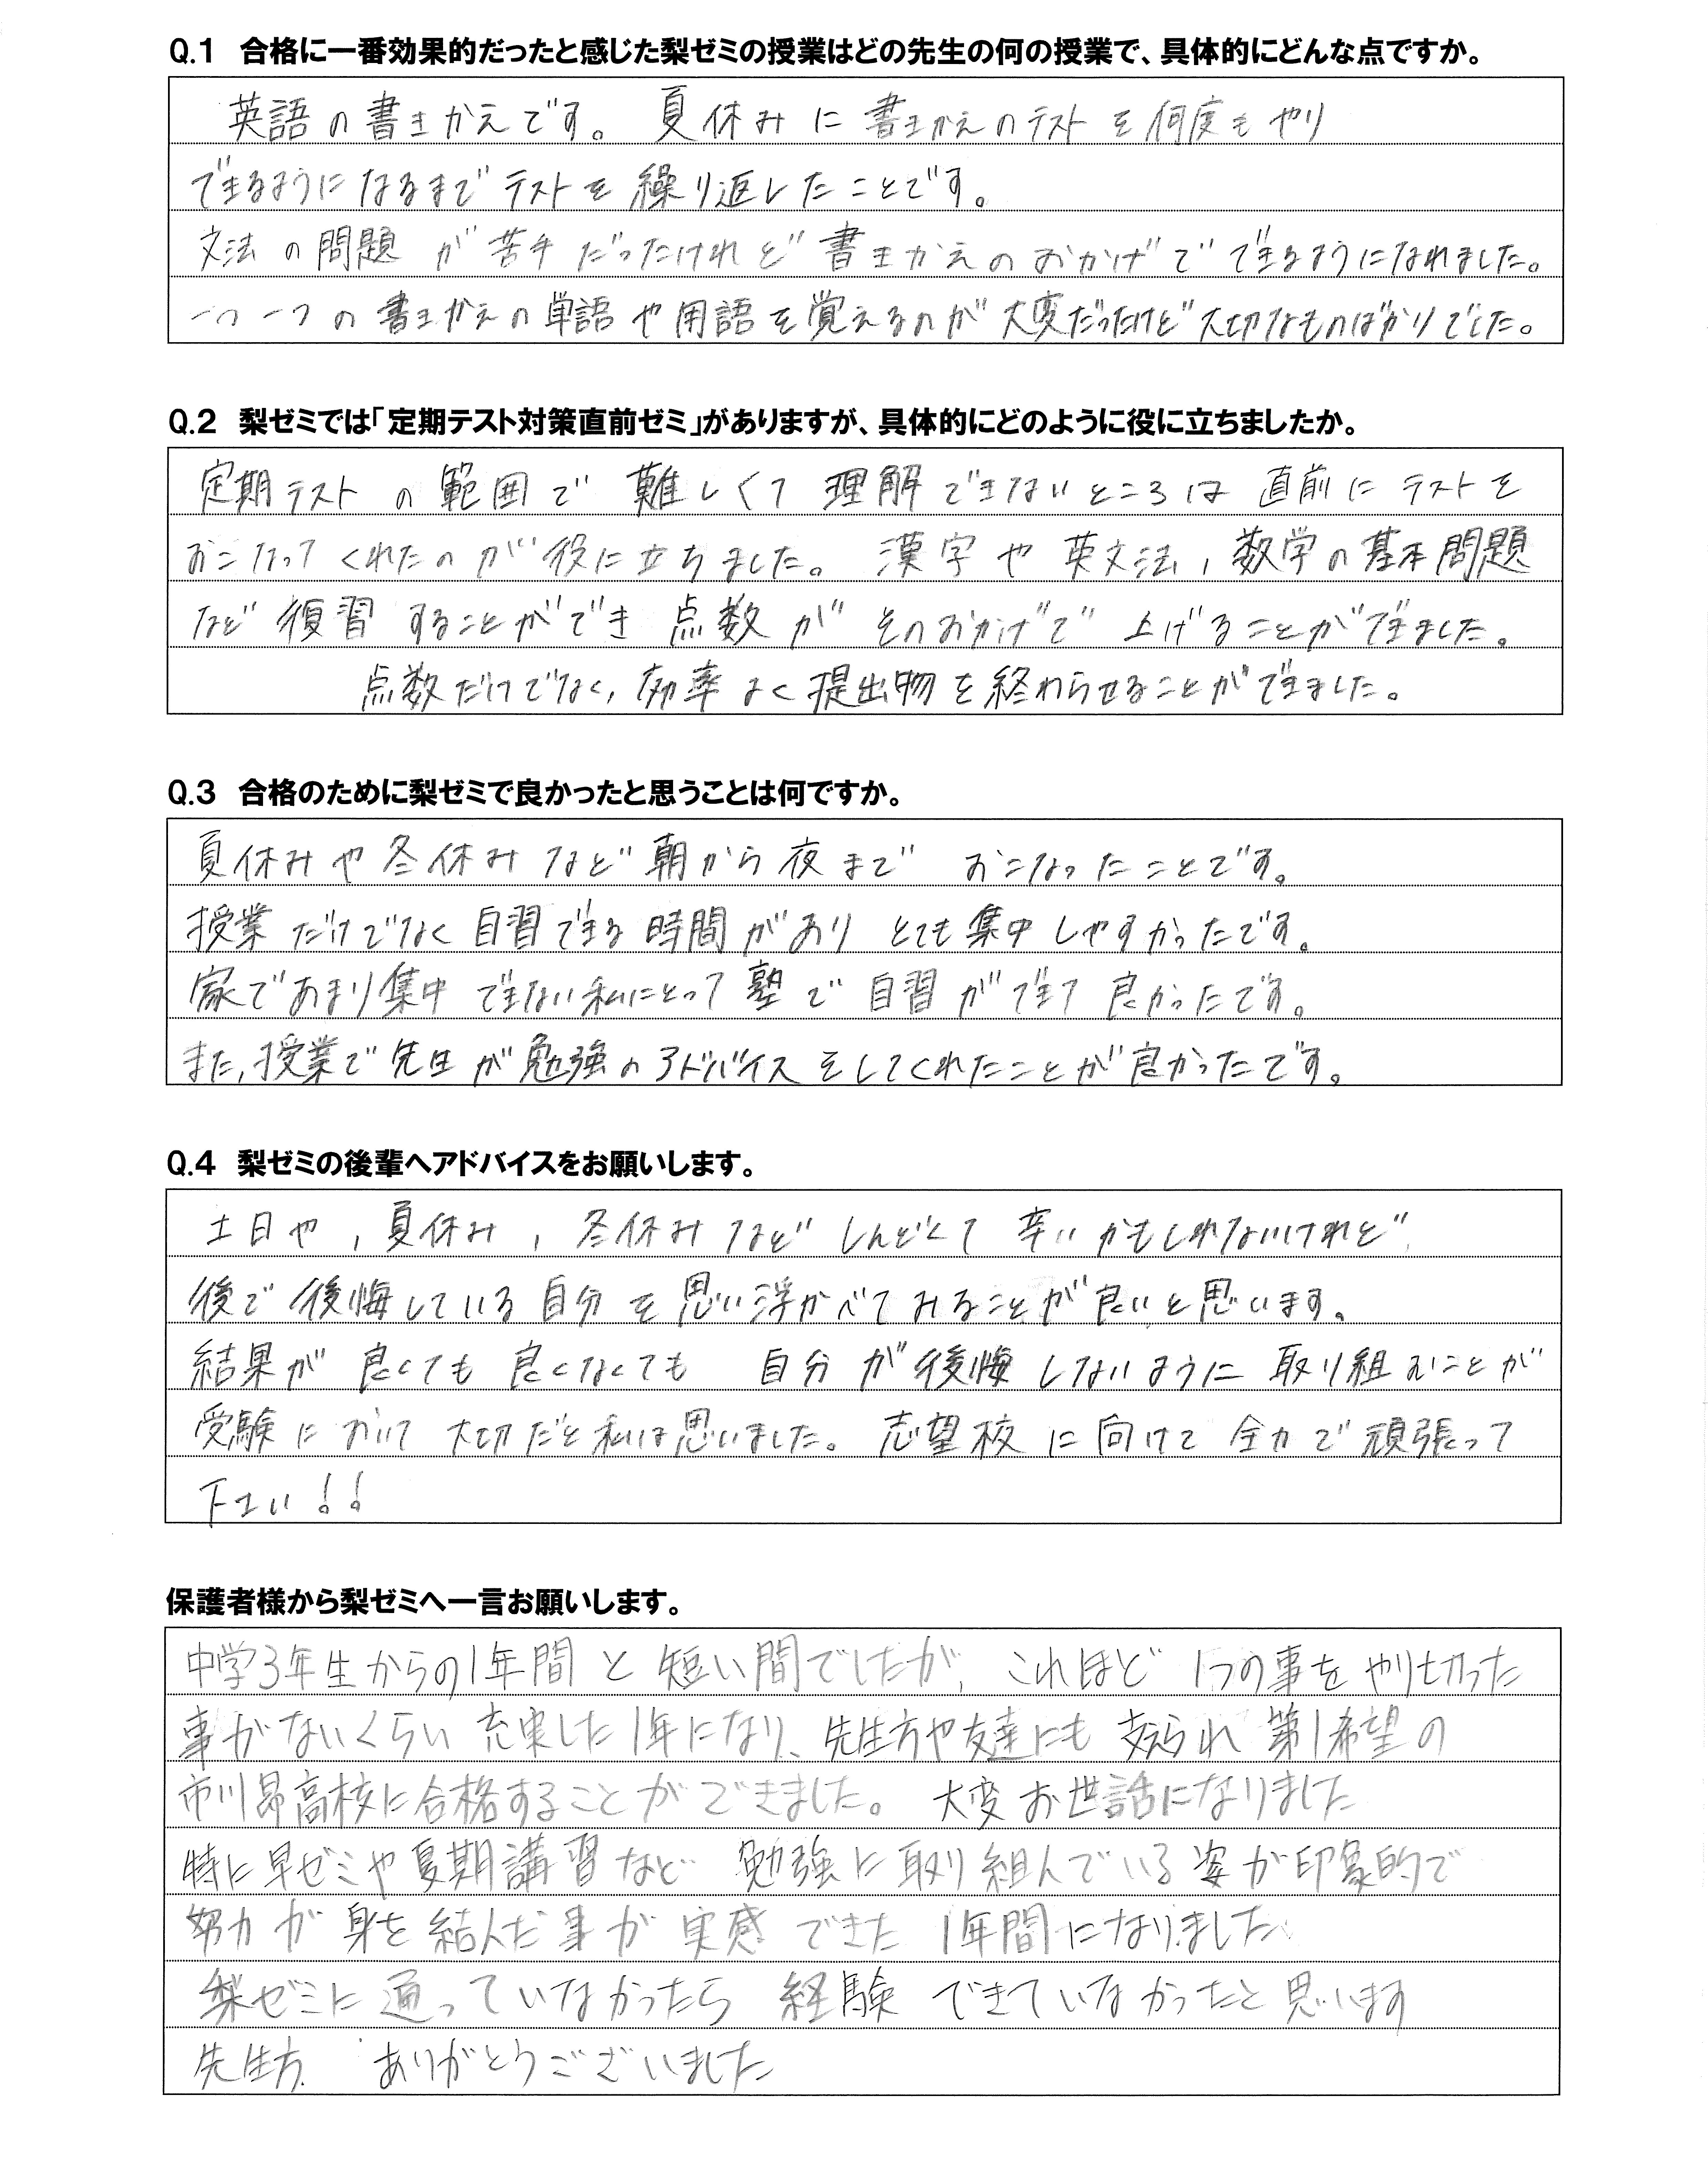 Q.1 合格に一番効果的だったと感じた梨ゼミの授業はどの先生の何の授業で、具体的にどんな点ですか。
英語の書きかえです。夏休みに書きかえのテストを何度もやり
できるようになるまでテストを繰り返したことです。
文法の問題が苦手だったけれど書きかえのおかげでできるようになれました。
一つ一つの書きかえの単語や用語を覚えるのが大変だったけど大切なものばかりでした。
Q.2 梨ゼミでは「定期テスト対策直前ゼミ」がありますが、具体的にどのように役に立ちましたか。
定期テストの範囲で難しくて理解できないところは直前にテストを
おこなってくれたのが役に立ちました。漢字や英文法,数学の基本問題
など復習することができ点数がそのおかげで上げることができました。
点数だけでなく,効率よく提出物を終わらせることができました。
Q.3 合格のために梨ゼミで良かったと思うことは何ですか。
夏休みや冬休みなど朝から夜までおこなったことです。
授業だけでなく自習できる時間がありとても集中しやすかったです。
家であまり集中できない私にとって塾で自習ができて良かったです。
また,授業で先生が勉強のアドバイスをしてくれたことが良かったです。
Q.4 梨ゼミの後輩へアドバイスをお願いします。
土日や,夏休み,冬休みなどしんどくて辛いかもしれないけれど
後で後悔している自分を思い浮かべてみることが良いと思います。
結果が良くても良くなくても 自分が後悔しないように取り組むことが
受験において大切だと私は思いました。志望校に向けて全力で頑張って
下さい!!
保護者様から梨ゼミへ一言お願いします。
中学3年生からの1年間と短い間でしたが,これほど1つの事をやり切った
事がないくらい充実した1年になり、先生方や友達にも支えられ第1希望の
市川昴高校に合格することができました。大変お世話になりました
特に早ゼミや夏期講習など勉強に取り組んでいる姿が印象的で
努力が身を結んだ事が実感できた1年間になりました
梨ゼミに通っていなかったら経験できていなかったと思います
先生方 ありがとうございました